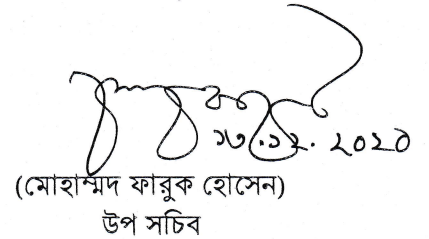 ১৩.১২.২০২০
(মোহাম্মদ ফারুক হোসেন)
উপ সচিব